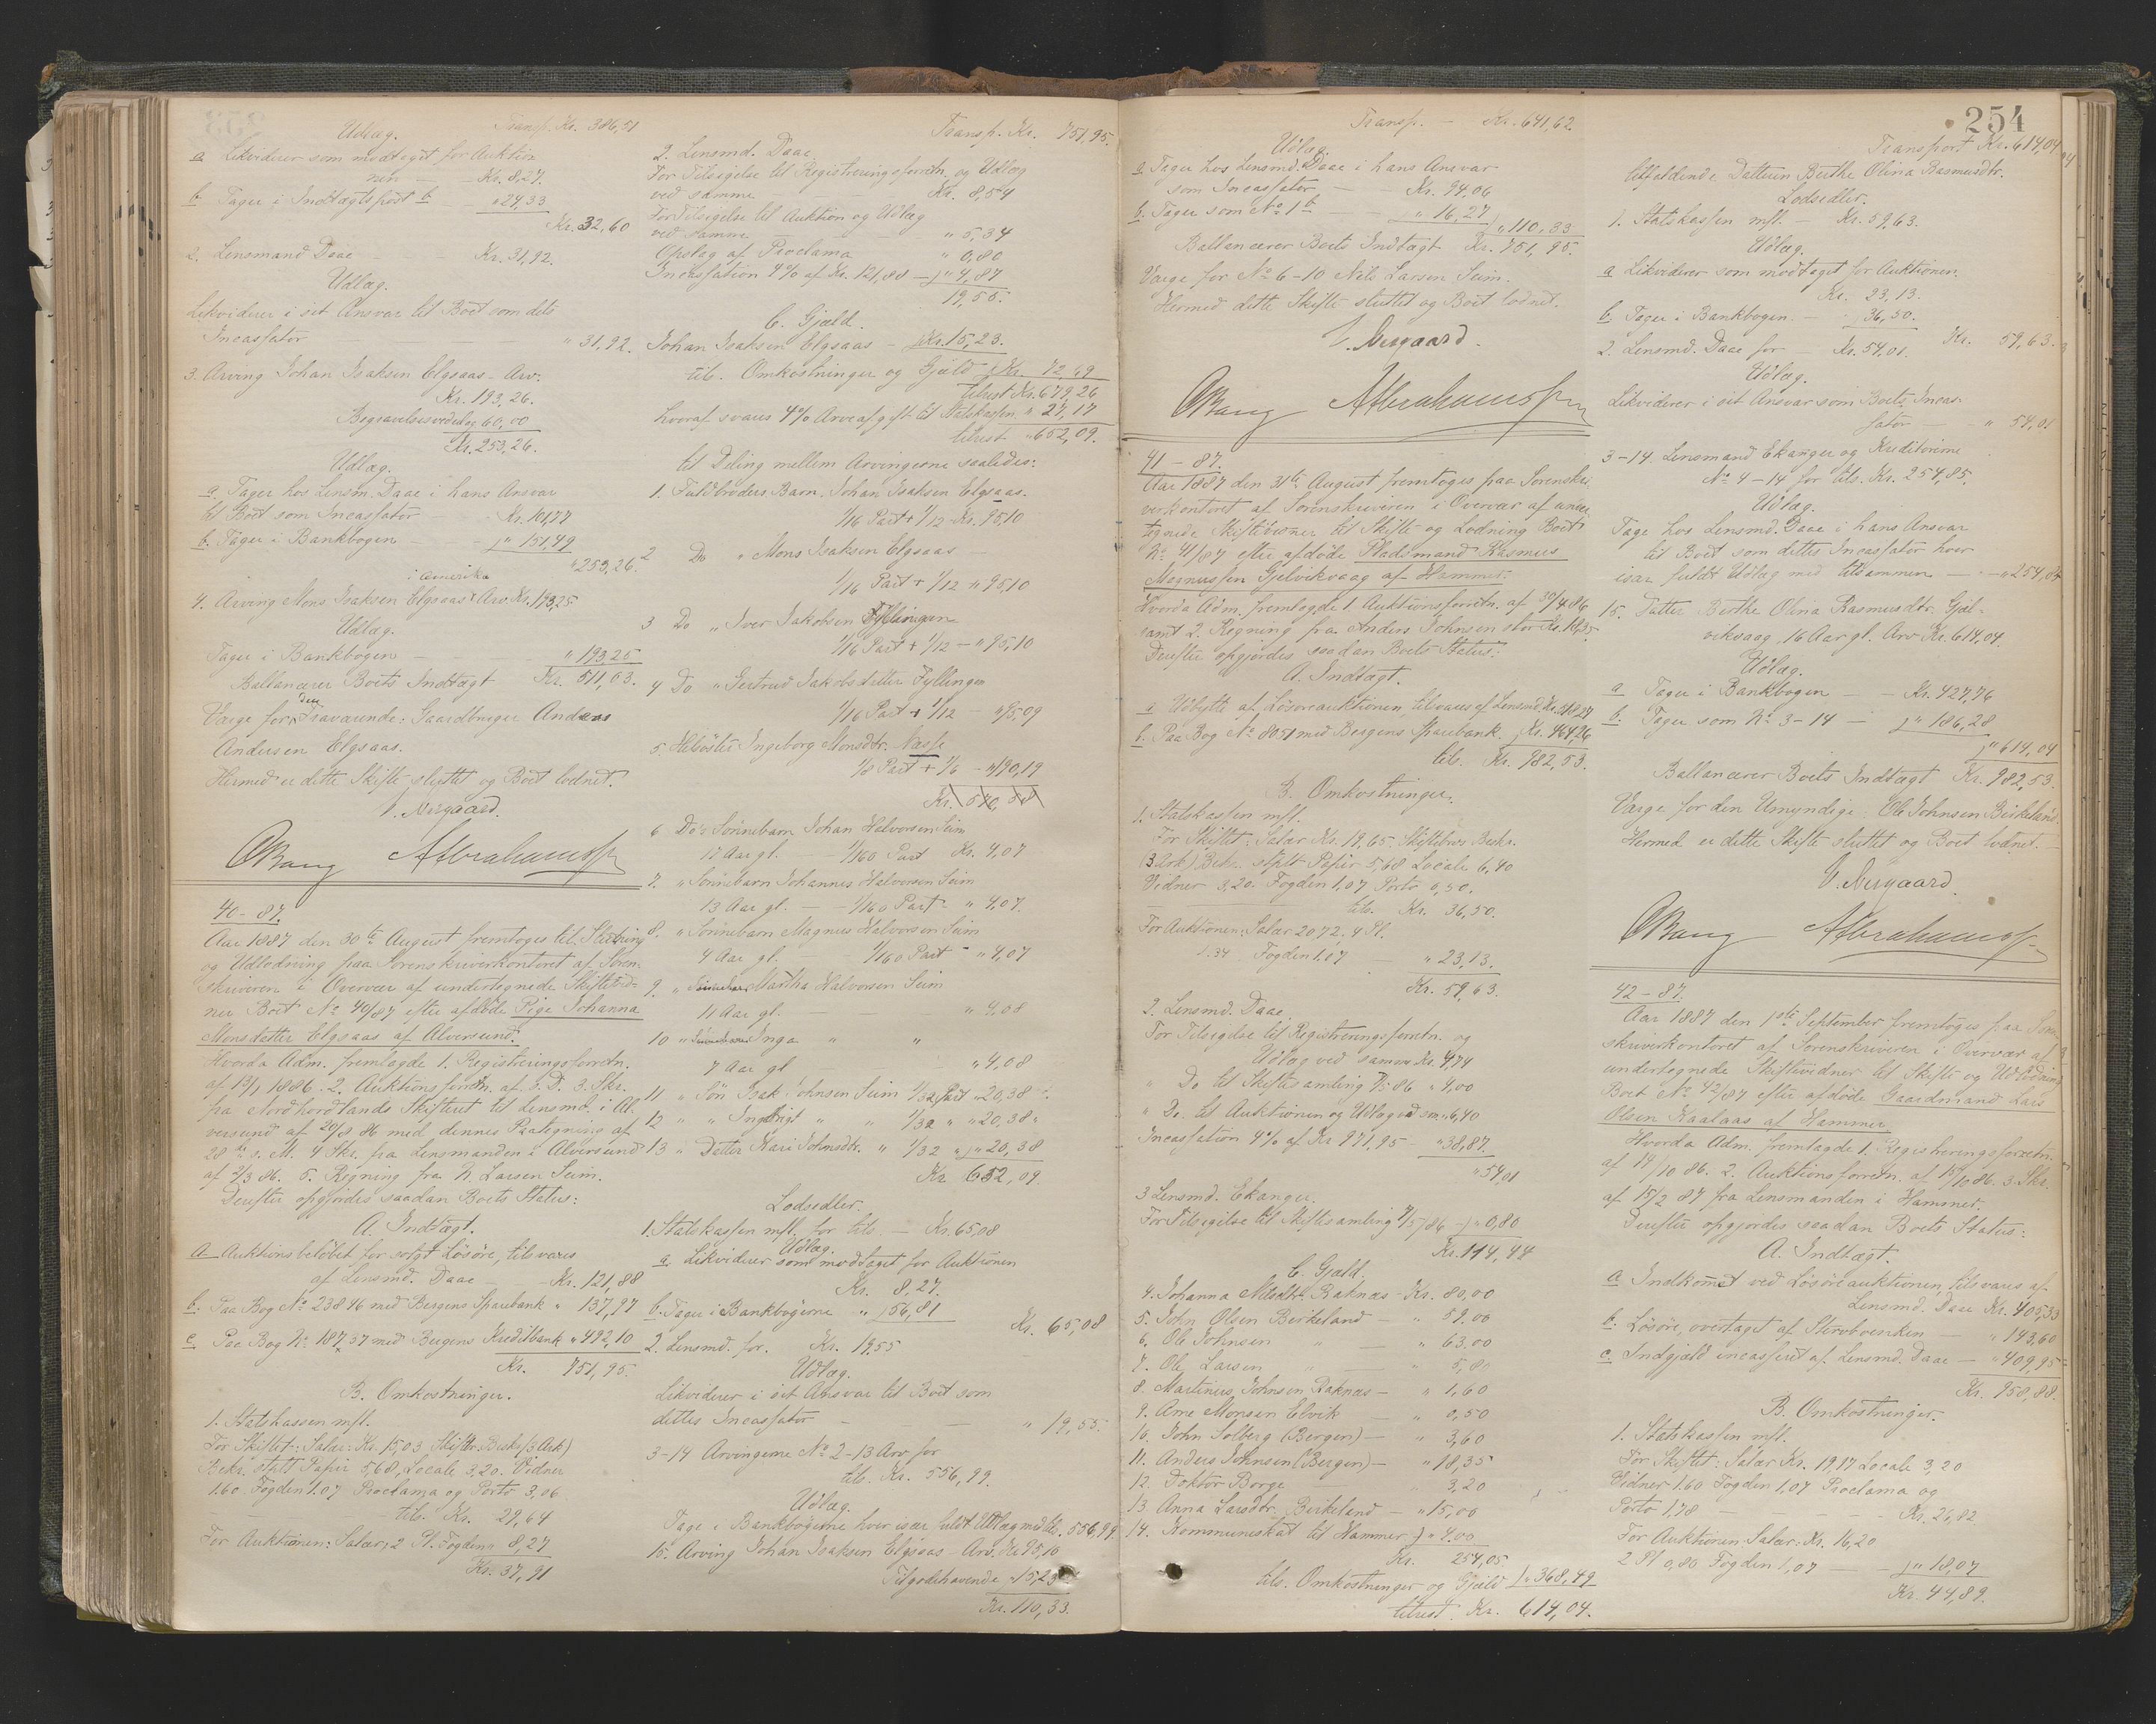 Udlæg. Transp. Kr. 386,51
a Likviderer som modtaget for Auktio-
nen — Kr. 8,27.
b Tager i Indtægtspost b — " 24,33
Kr. 32,60
2. Lensmand Daae — Kr. 31,92.
Udlæg.
Likviderer i sit Ansvar til Boet som dets
Incassator — " 31,92.
3. Arving Johan Isaksen Elgsaas Arv:
Kr. 193,26.
Begravelsesvederlag 60,00
Kr. 253,26.
Udlæg.
a. Tager hos Lensm. Daae i hans Ansvar
til Boet som Incassator — Kr. 101,77
b. Tager i Bankbogen — " 151,49
" 253,26.
i Amerika
4. Arving Mons Isaksen Elgsaas Arv. Kr. 193,25
Udlæg.
Tager i Bankbogen — " 193,25
Ballancerer Boets Indtægt Kr. 511,03.
Værge for den Fraværende: Gaardbruger Anders
Andersen Elgsaas.
Hermed er dette Skifte sluttet og Boet lodnet.
V. Nergaard.
OBang AAbrahamssen
40 – 87.
Aar 1887 den 30te August fremtoges til Slutning
og Udlodning paa Sorenskriverkontoret af Soren-
skriveren i Overvær af undertegnede Skiftevid-
ner Boet No 40/87 efter afdöde Pige Johanna
Monsdatter Elgsaas af Alversund.
Hvorda Adm. fremlagde 1. Registreringsforretn.
af 13/1 1886. 2. Auktionsforretn. af S. D. 3. Skr.
fra Nordhordlands Skifteret til Lensmd. i Al-
versund af 20/8 86 med dennes Paategning af
28de s. M. 4 Skr. fra Lensmanden i Alversund
af 2/3 86. 5. Regning fra N. Larsen Seim.
Derefter opgjordes saadan Boets Status:
A. Indtægt.
a Auktionsbelöbet for solgt Lösöre, tilsvares
af Lensmd. Daae — Kr. 121,88
b. Paa Bog No 23846 med Bergens Sparebank " 137,97
c Paa Bog No 18737 med Bergens Kreditbank " 492,10
Kr. 751,95.
B. Omkostninger.
1. Statskassen mfl.
For Skiftet: Salær: Kr. 15,03 Skiftebr. Beskr. (3 Ark)
Bekr. stplt Papir 5,68, Locale 3,20. Vidner
1.60 Fogden 1.07 Proclama og Porto 3,06
tils. Kr. 29,64
For Auktionen: Salær, 2 Pl. Fogden " 8,27
Kr. 37,91
Transp. Kr. 751,95.
2. Lensmd. Daae.
For Tilsigelse til Registreringsforretn. og Udlæg
ved samme Kr. 8,54
For Tilsigelse til Auktion og Udlæg
ved samme — " 5,34
Opslag af Proclama " 0,80
Incassation 4% af Kr. 121,88 — " 4,87
19,55.
C. Gjæld.
Johan Isaksen Elgsaas — Kr. 15,23.
tils. Omkostninger og Gjæld Kr. 72,69
tilrest Kr. 679,26
hvoraf svares 4% Arveafgift til Statskassen " 27,17
tilrest " 652,09.
til Deling mellem Arvingerne saaledes:
1. Fuldbroders Barn. Johan Isaksen Elgsaas.
1/16 Part + 1/12 Kr. 95,10
2 Do " Mons Isaksen Elgsaas —
1/16 Part + 1/12 " 95,10
3 Do " Iver Jakobsen Fyllingen
1/16 Part + 1/12 — " 95,10
4 Do " Gertrud Jakobsdatter Fyllingen
1/16 Part + 1/12 — " 95,09
5 Helsöster Ingeborg Monsdtr. Næsse
1/8 Part + 1/6 — " 190,19
Kr. 570,58
6 Do's Sönnebarn Johan Halvorsen Seim
17 Aar gl. — 1/160 Part Kr. 4,07
7. " Sönnebarn Johannes Halvorsen Seim
13 Aar gl. — 1/160 Part " 4,07.
8. " Sönnebarn Magnus Halvorsen Seim
4 Aar gl. — 1/160 Part " 4,07
9. " Martha Halvorsen Seim
11 Aar gl. — " 4,08
10 " Inga " "
7 Aar gl — " 4,08
11 " Sön Isak Johnsen Seim 1/32 Part " 20,38
12 " " Ingebrigt " " 1/32 " " 20,38
13 " Datter Kari Johnsdtr. " 1/32 " 20,38
Kr. 652,09.
Lodsedler.
1. Statskassen mfl. for tils. — Kr. 65,08
Udlæg.
a. Likviderer som modtaget for Auktionen
Kr. 8,27.
b. Tager i Bankbögerne " 56,81
Kr. 65,08
2. Lensmd. for. Kr. 19.55
Udlæg.
Likviderer i sit Ansvar til Boet som
dettes Incassator — " 19,55.
3–14 Arvingerne No 2–13 Arv for
tils. Kr. 556,99.
Udlæg.
Tage i Bankbögerne hver især fuldt Udlæg med tils. 556,99.
15. Arving Johan Isaksen Elgsaas – Arv. Kr. 95,10
Tilgodehavende " 15,23
Kr. 110,33.
Transp. — Kr. 641,62.
Udlæg.
a. Tager hos Lensmd. Daae i hans Ansvar
som Incassator — Kr. 94,06
b. Tager som No 1 b — " 16,27
" 110,33
Ballancerer Boets Indtægt Kr. 751,95.
Værge for No 6–10 Nils Larsen Seim.
Hermed dette Skifte sluttet og Boet lodnet.
V. Nergaard.
OBang AAbrahamssen
41 – 87.
Aar 1887 den 31te August fremtoges paa Sorenskri-
verkontoret af Sorenskriveren i Overvær af under
tegnede Skiftevidner til Skifte og Lodning Boet
No 41/87 efter afdöde Pladsmand Rasmus
Magnussen Gjelvikvaag af Hammer.
Hvorda Adm. fremlagde 1. Auktionsforretn. af 30/4 86
samt 2. Regning fra Anders Johnsen stor Kr. 18,35.
Derefter opgjordes saadan Boets Status:
A. Indtægt.
a Udbytte af Lösöreauktionen, tilsvares af Lensmd. Kr. 518,27
b. Paa Bog No 8051 med Bergens Sparebank. Kr. 464,26
tils. Kr. 982,53.
B. Omkostninger.
1. Statskassen mfl.
For Skiftet: Salær Kr. 19,65 Skiftebrev Beskr.
(3 Ark) Bekr. stplt Papir 5,68 Locale 6,40
Vidner 3,20. Fogden 1,07 Porto 0,50.
tils. Kr. 36,50.
For Auktionen: Salær 20,72. 4 Pl.
1.34 Fogden 1.07 — " 23,13.
Kr. 59,63.
2. Lensmd. Daae.
For Tilsigelse til Registreringsforretn. og
Udlæg ved samme Kr. 4,74
" Do til Skiftesamling 7/5 86 " 4,00
" Do. til Auktionen og Udlæg ved sm. " 6,40
Incassation 4% af Kr 971,95 — " 38,87.
" 54,01
3 Lensmd. Ekanger.
For Tilsigelse til Skiftesamling 7/5 86 — " 0,80
Kr. 114,44
C. Gjæld.
4. Johanna Raknæs – Kr. 80,00
5. John Olsen Birkeland — " 59.00
6. Ole Johnsen " — " 63.00
7. Ole Larsen " — " 5,80
8. Martinus Johnsen Raknæs — " 1,60
9. Arne Monsen Elvik — " 0,50
10. John Solberg (Bergen) — " 3,60
11. Anders Johnsen (Bergen) — " 18,35
12. Doktor Borge " 3,20
13. Anna Larsdtr. Birkeland — " 15,00
14. Kommuneskat til Hammer " 4.00
Kr. 254,05
tils. Omkostninger og Gjæld " 368,49
tilrest. Kr. 614,04.
254
Transport Kr. 614,04.
tilfaldende Datteren Berthe Olina Rasmusdtr.
Lodsedler.
1. Statskassen mfl. — Kr. 59,63.
Udlæg.
a Likviderer som modtaget for Auktionen.
Kr. 23,13.
b. Tager i Bankbogen. — 36,50.
Kr. 59,63.
2. Lensmd. Daae for — Kr. 54,01.
Udlæg.
Likviderer i sit Ansvar som Boets Incas-
sator — " 54,01
3–14. Lensmand Ekanger og Kreditorerne
No 4–14 for tils. Kr. 254,85.
Udlæg.
Tage hos Lensmd. Daae i hans Ansvar
til Boet som dettes Incassator hver
især fuldt Udlæg med tilsammen —
15. Datter Berthe Olina Rasmusdtr. Gjel-
vikvaag, 16 Aar gl. Arv Kr. 614,04.
Udlæg.
a Tager i Bankbogen — Kr. 427,76
b. Tager som No 3–14 — " 186,28
" 614,04
Ballancerer Boets Indtægt Kr. 982,53.
Værge for den Umyndige Ole Johnsen Birkeland.
Hermed er dette Skifte sluttet og Boet lodnet.
V. Nergaard.
OBang AAbrahamssen
42 – 87.
Aar 1887 den 1ste September fremtoges paa Soren
skriverkontoret af Sorenskriveren i Overvær af
undertegnede Skiftevidner til Skifte og Udlodning
Boet No 42/87 efter afdöde Gaardmand Lars
Olsen Kaalaas af Hammer.
Hvorda Adm. fremlagde 1. Registreringsforretn.
af 14/10 86. 2. Auktionsforretn. af 15/10 86. 3. Skr.
af 15/2 87 fra Lensmanden i Hammer.
Derefter opgjordes saadan Boets Status:
A. Indtægt.
a Indkommet ved Lösöreauktionen, tilsvares af
Lensmd. Daae Kr. 405,33
b. Lösöre, overtaget af Stervboenken — " 143,60
c. Indgjæld incasseret af Lensmd. Daae — " 409,95
Kr. 958,88.
B. Omkostninger.
1. Statskassen mfl.
For Skiftet: Salær Kr. 19,17 Locale 3,20
Vidner 1.60 Fogden 1,07 Proclama og
Porto 1,78 — Kr. 26,82
For Auktionen: Salær: Kr. 16,20
2 Pl 0,80 Fogden 1,07 — " 18,07
Kr. 44,89.